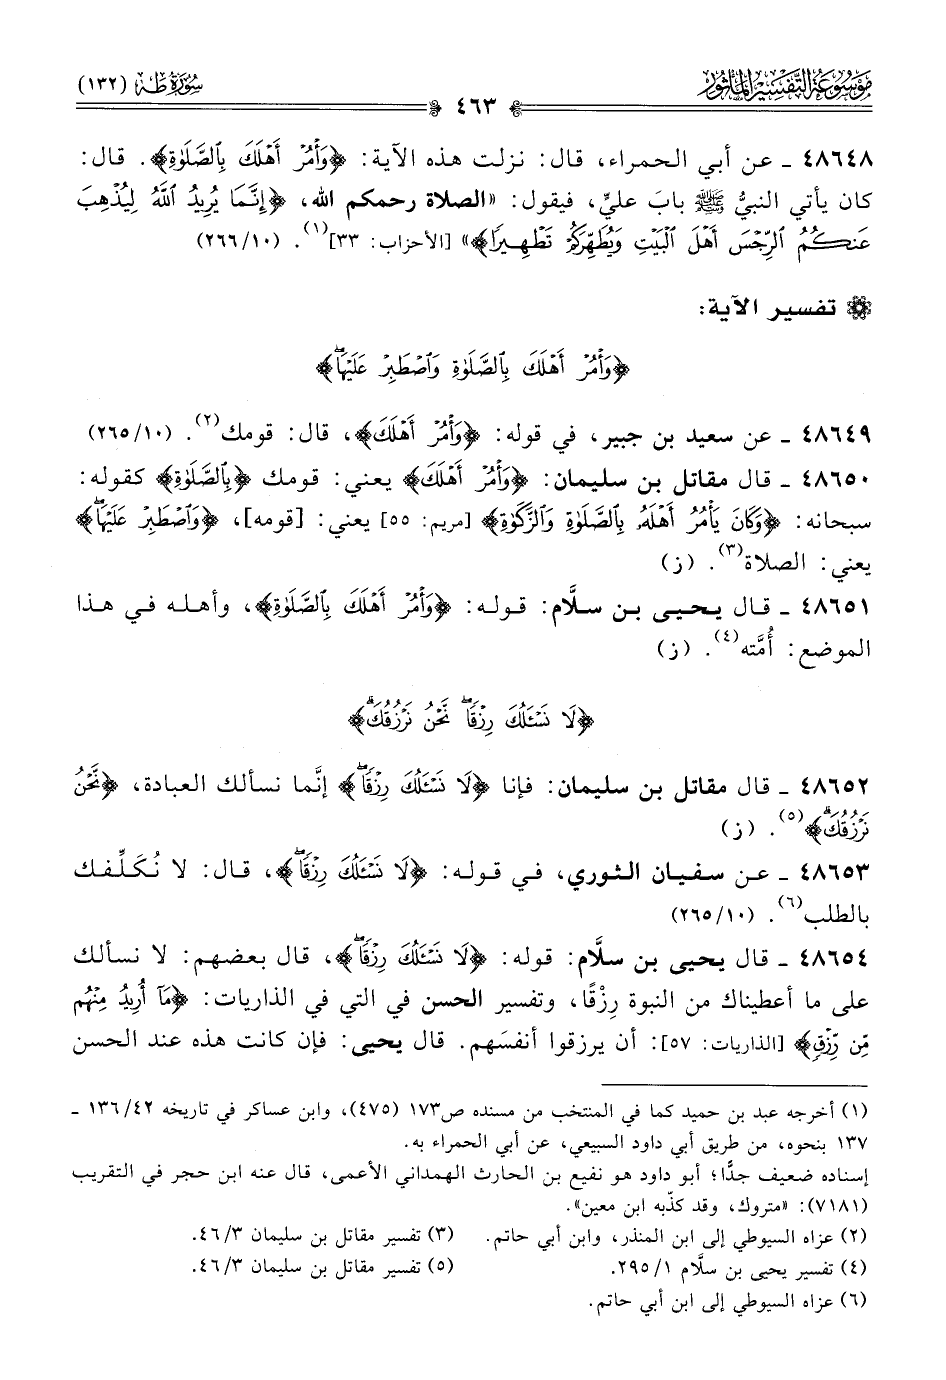 مَوْسُوعَة التَّفْسِير المَأثُور
سُورَة طه (١٣٢)
٤٦٣
٤٨٦٤٨ - عن أبي الحمراء، قال: نزلت هذه الآية: ﴿وَأْمُرْ أَهْلَكَ بِالصَّلَوٰةِ﴾. قال:
كان يأتي النبيُّ ﷺ بابَ عليٍّ، فيقول: «الصلاة رحمكم الله، ﴿إِنَّمَا يُرِيدُ ٱللَّهُ لِيُذْهِبَ
عَنكُمُ ٱلرِّجْسَ أَهْلَ ٱلْبَيْتِ وَيُطَهِّرَكُمْ تَطْهِيرًا﴾» [الأحزاب: ٣٣](١). (٢٦٦/١٠)
تفسير الآية:
﴿وَأْمُرْ أَهْلَكَ بِٱلصَّلَوٰةِ وَٱصْطَبِرْ عَلَيْهَاۖ﴾
٤٨٦٤٩ - عن سعيد بن جبير، في قوله: ﴿وَأْمُرْ أَهْلَكَ﴾، قال: قومك(٢). (٢٦٥/١٠)
٤٨٦٥٠ - قال مقاتل بن سليمان: ﴿وَأْمُرْ أَهْلَكَ﴾ يعني: قومك ﴿بِٱلصَّلَوٰةِ﴾ كقوله:
سبحانه: ﴿وَكَانَ يَأْمُرُ أَهْلَهُ بِٱلصَّلَوٰةِ وَٱلزَّكَوٰةِ﴾ [مريم: ٥٥] يعني: [قومه]، ﴿وَٱصْطَبِرْ عَلَيْهَاۖ﴾
يعني: الصلاة(٣). (ز)
٤٨٦٥١ - قال يحيى بن سلَّام: قوله: ﴿وَأْمُرْ أَهْلَكَ بِٱلصَّلَوٰةِ﴾، وأهله في هذا
الموضع: أُمَّته(٤). (ز)
﴿لَا نَسْـَٔلُكَ رِزْقًاۖ نَّحْنُ نَرْزُقُكَۗ﴾
٤٨٦٥٢ - قال مقاتل بن سليمان: فإنا ﴿لَا نَسْـَٔلُكَ رِزْقًاۖ﴾ إنَّما نسألك العبادة، ﴿نَّحْنُ
نَرْزُقُكَۗ﴾(٥). (ز)
٤٨٦٥٣ - عن سفيان الثوري، في قوله: ﴿لَا نَسْـَٔلُكَ رِزْقًاۖ﴾، قال: لا نُكَلِّفك
بالطلب(٦). (٢٦٥/١٠)
٤٨٦٥٤ - قال يحيى بن سلَّام: قوله: ﴿لَا نَسْـَٔلُكَ رِزْقًاۖ﴾، قال بعضهم: لا نسألك
على ما أعطيناك من النبوة رِزْقًا، وتفسير الحسن في التي في الذاريات: ﴿مَآ أُرِيدُ مِنْهُم
مِّن رِّزْقٍ﴾ [الذاريات: ٥٧]: أن يرزقوا أنفسَهم. قال يحيى: فإن كانت هذه عند الحسن
(١) أخرجه عبد بن حميد كما في المنتخب من مسنده ص١٧٣ (٤٧٥)، وابن عساكر في تاريخه ١٣٦/٤٢ -
١٣٧ بنحوه، من طريق أبي داود السبيعي، عن أبي الحمراء به.
إسناده ضعيف جدًّا؛ أبو داود هو نفيع بن الحارث الهمداني الأعمى، قال عنه ابن حجر في التقريب
(٧١٨١): «متروك، وقد كذّبه ابن معين».
(٢) عزاه السيوطي إلى ابن المنذر، وابن أبي حاتم. (٣) تفسير مقاتل بن سليمان ٤٦/٣.
(٤) تفسير يحيى بن سلَّام ٢٩٥/١. (٥) تفسير مقاتل بن سليمان ٤٦/٣.
(٦) عزاه السيوطي إلى ابن أبي حاتم.